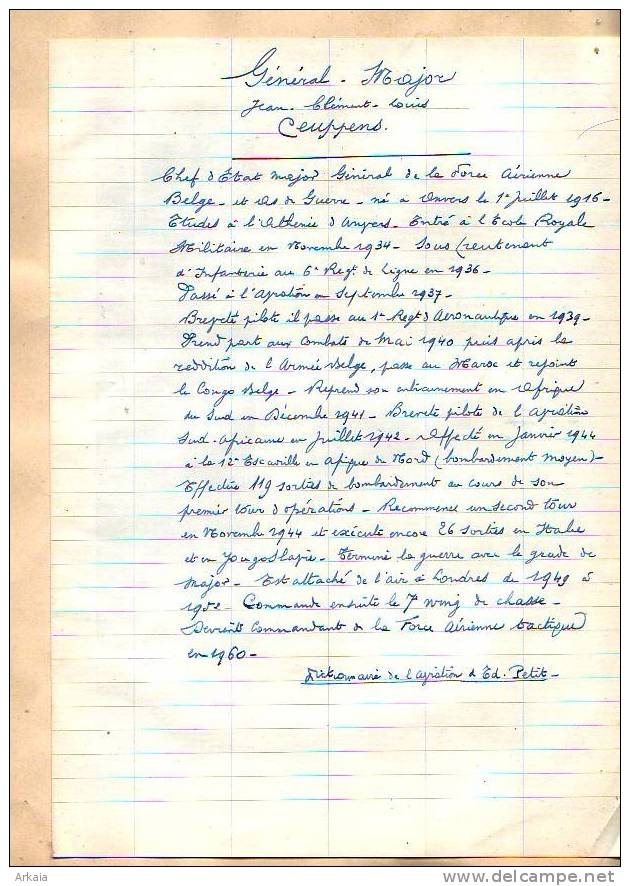 Général - Major
Jean - Clément - Louis
Ceuppens.
Chef d'Etat major Général de la Force Aérienne
Belge - et As de Guerre - né à Anvers le 1er Juillet 1916 -
Etudes à l'Athénée d'Anvers - Entré à l'Ecole Royale
Militaire en Novembre 1934 - Sous Lieutenant
d'Infanterie au 6e Regt de Ligne en 1936 -
Passé à l'Aviation en Septembre 1937 -
Breveté pilote il passe au 1er Regt d'Aeronautique en 1939 -
Prend part aux combats de Mai 1940 puis après la
reddition de l'Armée Belge, passe au Maroc et rejoint
le Congo Belge - Reprend son entrainement en Afrique
du Sud en Décembre 1941 - Breveté pilote de l'aviation
Sud-Africaine en Juillet 1942 - Affecté en Janvier 1944
à la 12e Escadrille en Afrique du Nord (bombardement moyen) -
Effectue 119 sorties de bombardement au cours de son
premier tour d'opérations - Recommence un second tour
en Novembre 1944 et exécute encore 26 sorties en Italie
et en Yougoslavie - Termine la guerre avec le grade de
Major - Est attaché de l'air à Londres de 1949 à
1952 - Commande ensuite le 7e wing de chasse -
Devient Commandant de la Force Aérienne tactique
en 1960 -
Dictionnaire de l'aviation d'Ed. Petit -
Arkaia
www.delcampe.net